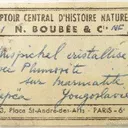 PTOIR CENTRAL D'HISTOIRE NATURE
N. BOUBÉE & Cie
Mispickel cristallisé
avec Plumosite
sur marmatite
Yougoslavie
3, Place St-André-des-Arts - PARIS